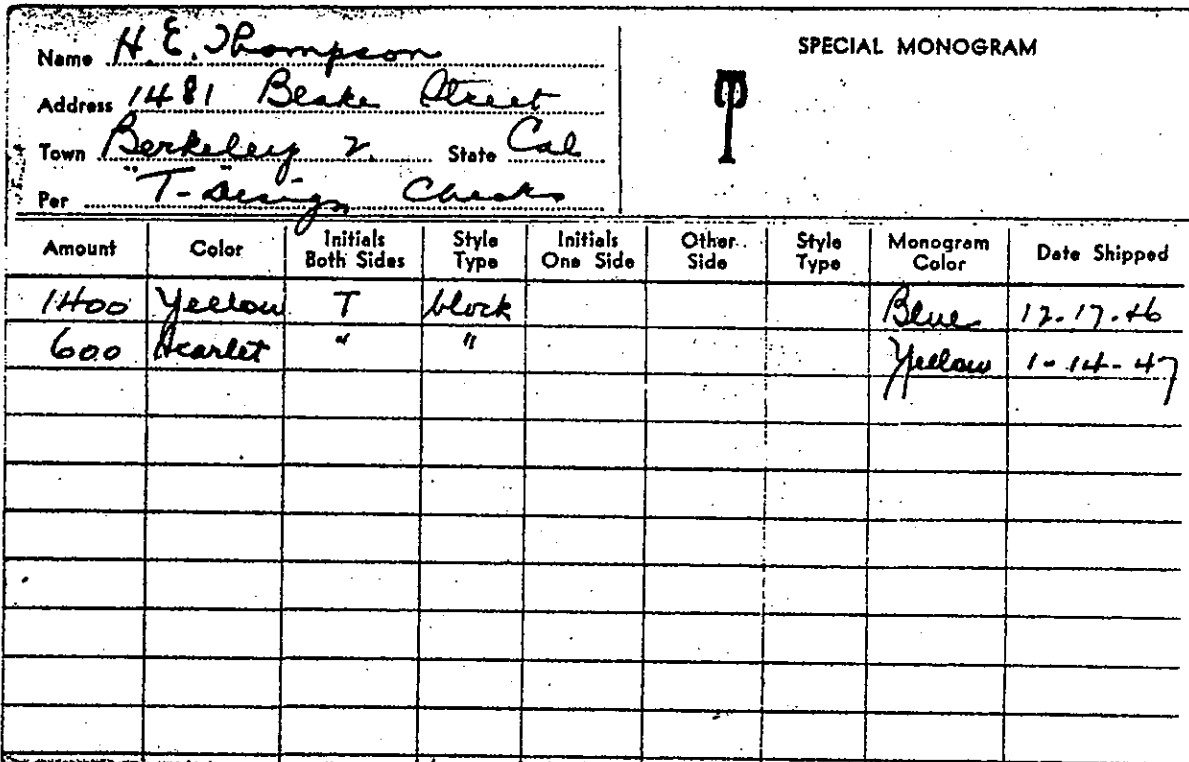 Name H. E. Thompson
SPECIAL MONOGRAM
T
Address 1481 Blake Street
Town Berkeley 2. State Cal
Per "T-Design Checks
Amount Color Initials Both Sides Style Type Initials One Side Other Side Style Type Monogram Color Date Shipped
1400 Yellow T block Blue 12-17-46
600 Scarlet " " Yellow 1-14-47